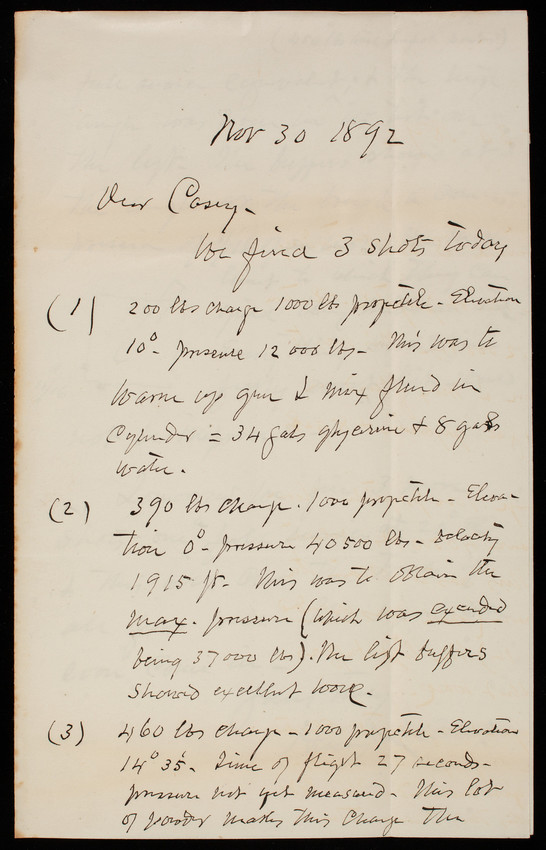 Nov 30 1892
Dear Casey -
We fired 3 shots today
(1) 200 lbs charge 1000 lbs projectile - Elevation
10° - pressure 12000 lbs - This was to
warm up gun & mix fluid in
Cylinder = 34 gals glycerine & 8 gals
water.
(2) 390 lbs charge. 1000 projectile - Eleva-
tion 0° - pressure 40500 lbs - velocity
1915 ft - This was to obtain the
max. pressure (which was exceeded
being 37000 lbs). The buffers
showed excellent work.
(3) 460 lbs charge - 1000 projectile - Elevation
14° 35' - Time of flight 27 seconds -
pressure not yet measured - This lot
of powder makes this charge the